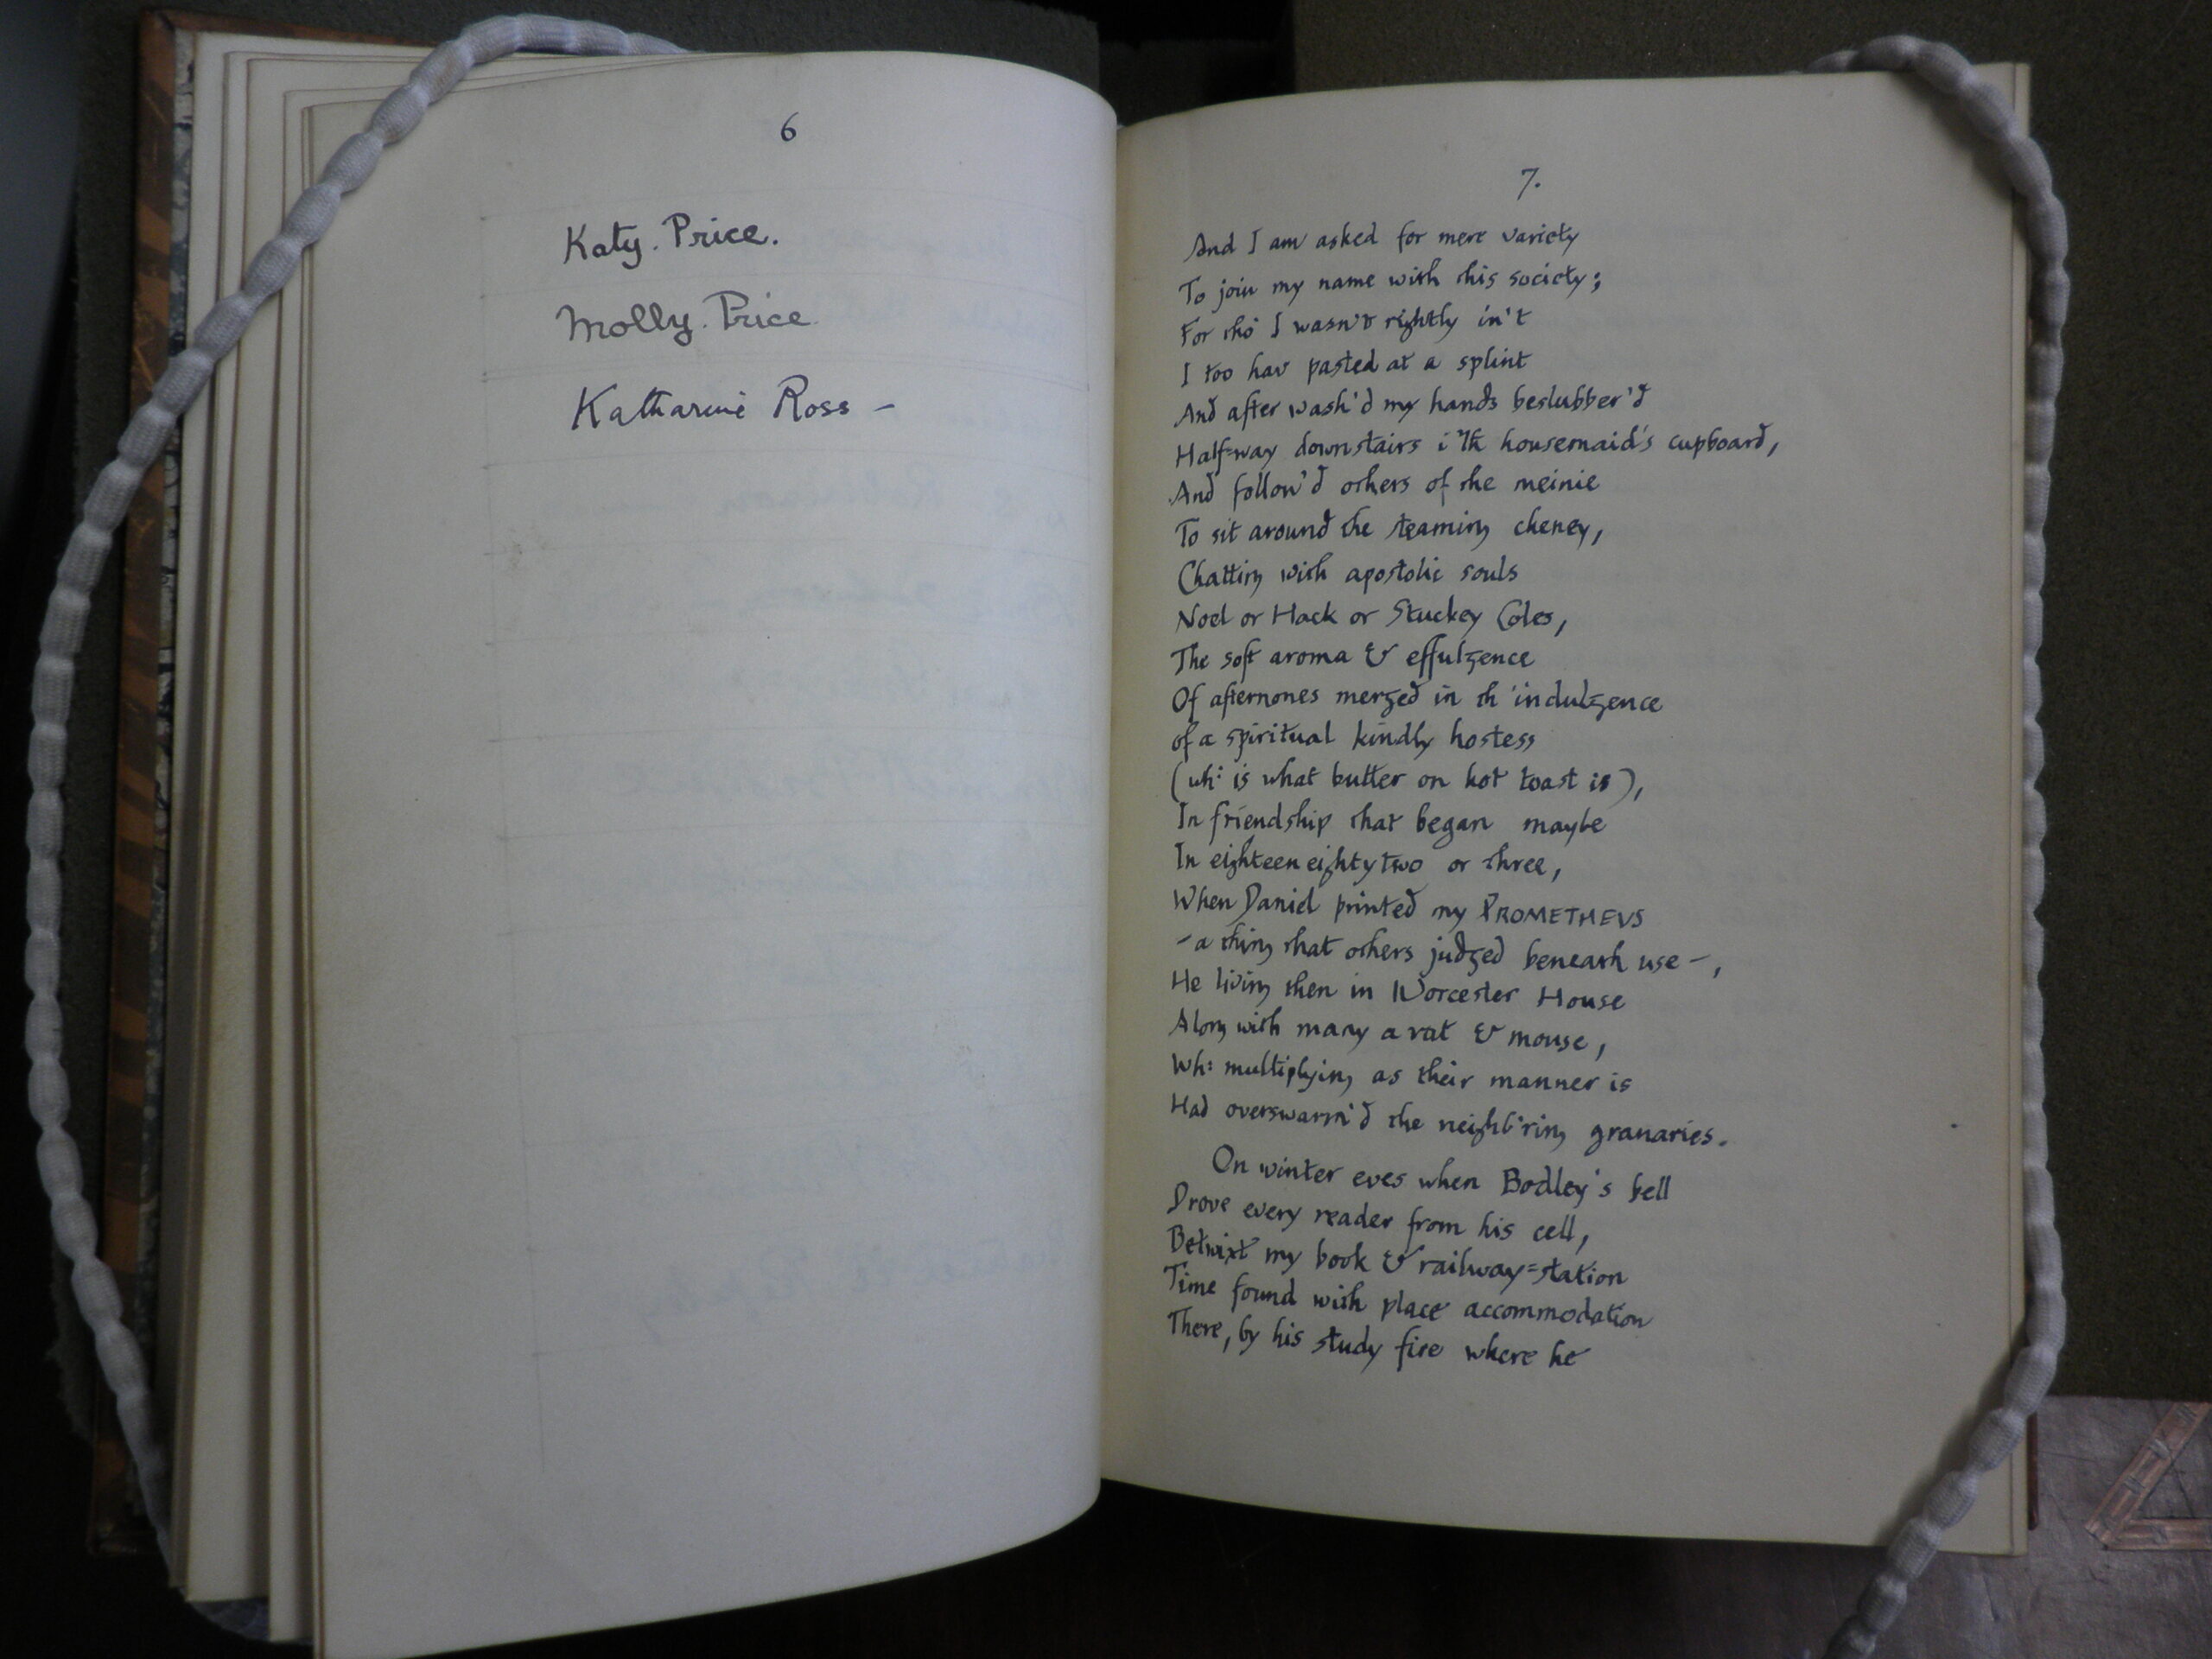 6
Katy. Price.
Molly. Price
Katharine Ross –
7.
And I am asked for mere variety
To join my name with this society;
For tho' I wasn't rightly in't
I too hav pasted at a splint
And after wash'd my hands beslubber'd
Half=way downstairs i'th housemaid's cupboard,
And follow'd others of the meinie
To sit around the steaming cheney,
Chatting with apostolic souls
Noel or Hack or Stuckey Coles,
The soft aroma & effulgence
Of afternones merged in th'indulgence
of a spiritual kindly hostess
(wh: is what butter on hot toast is),
In friendship that began maybe
In eighteen eighty two or three,
When Daniel printed my PROMETHEVS
– a thing that others judged beneath use –,
He living then in Worcester House
Along with many a rat & mouse,
Wh: multiplying as their manner is
Had overswarm'd the neighb'ring granaries.
On winter eves when Bodley's bell
Drove every reader from his cell,
Betwixt my book & railway=station
Time found with place accommodation
There, by his study fire where he